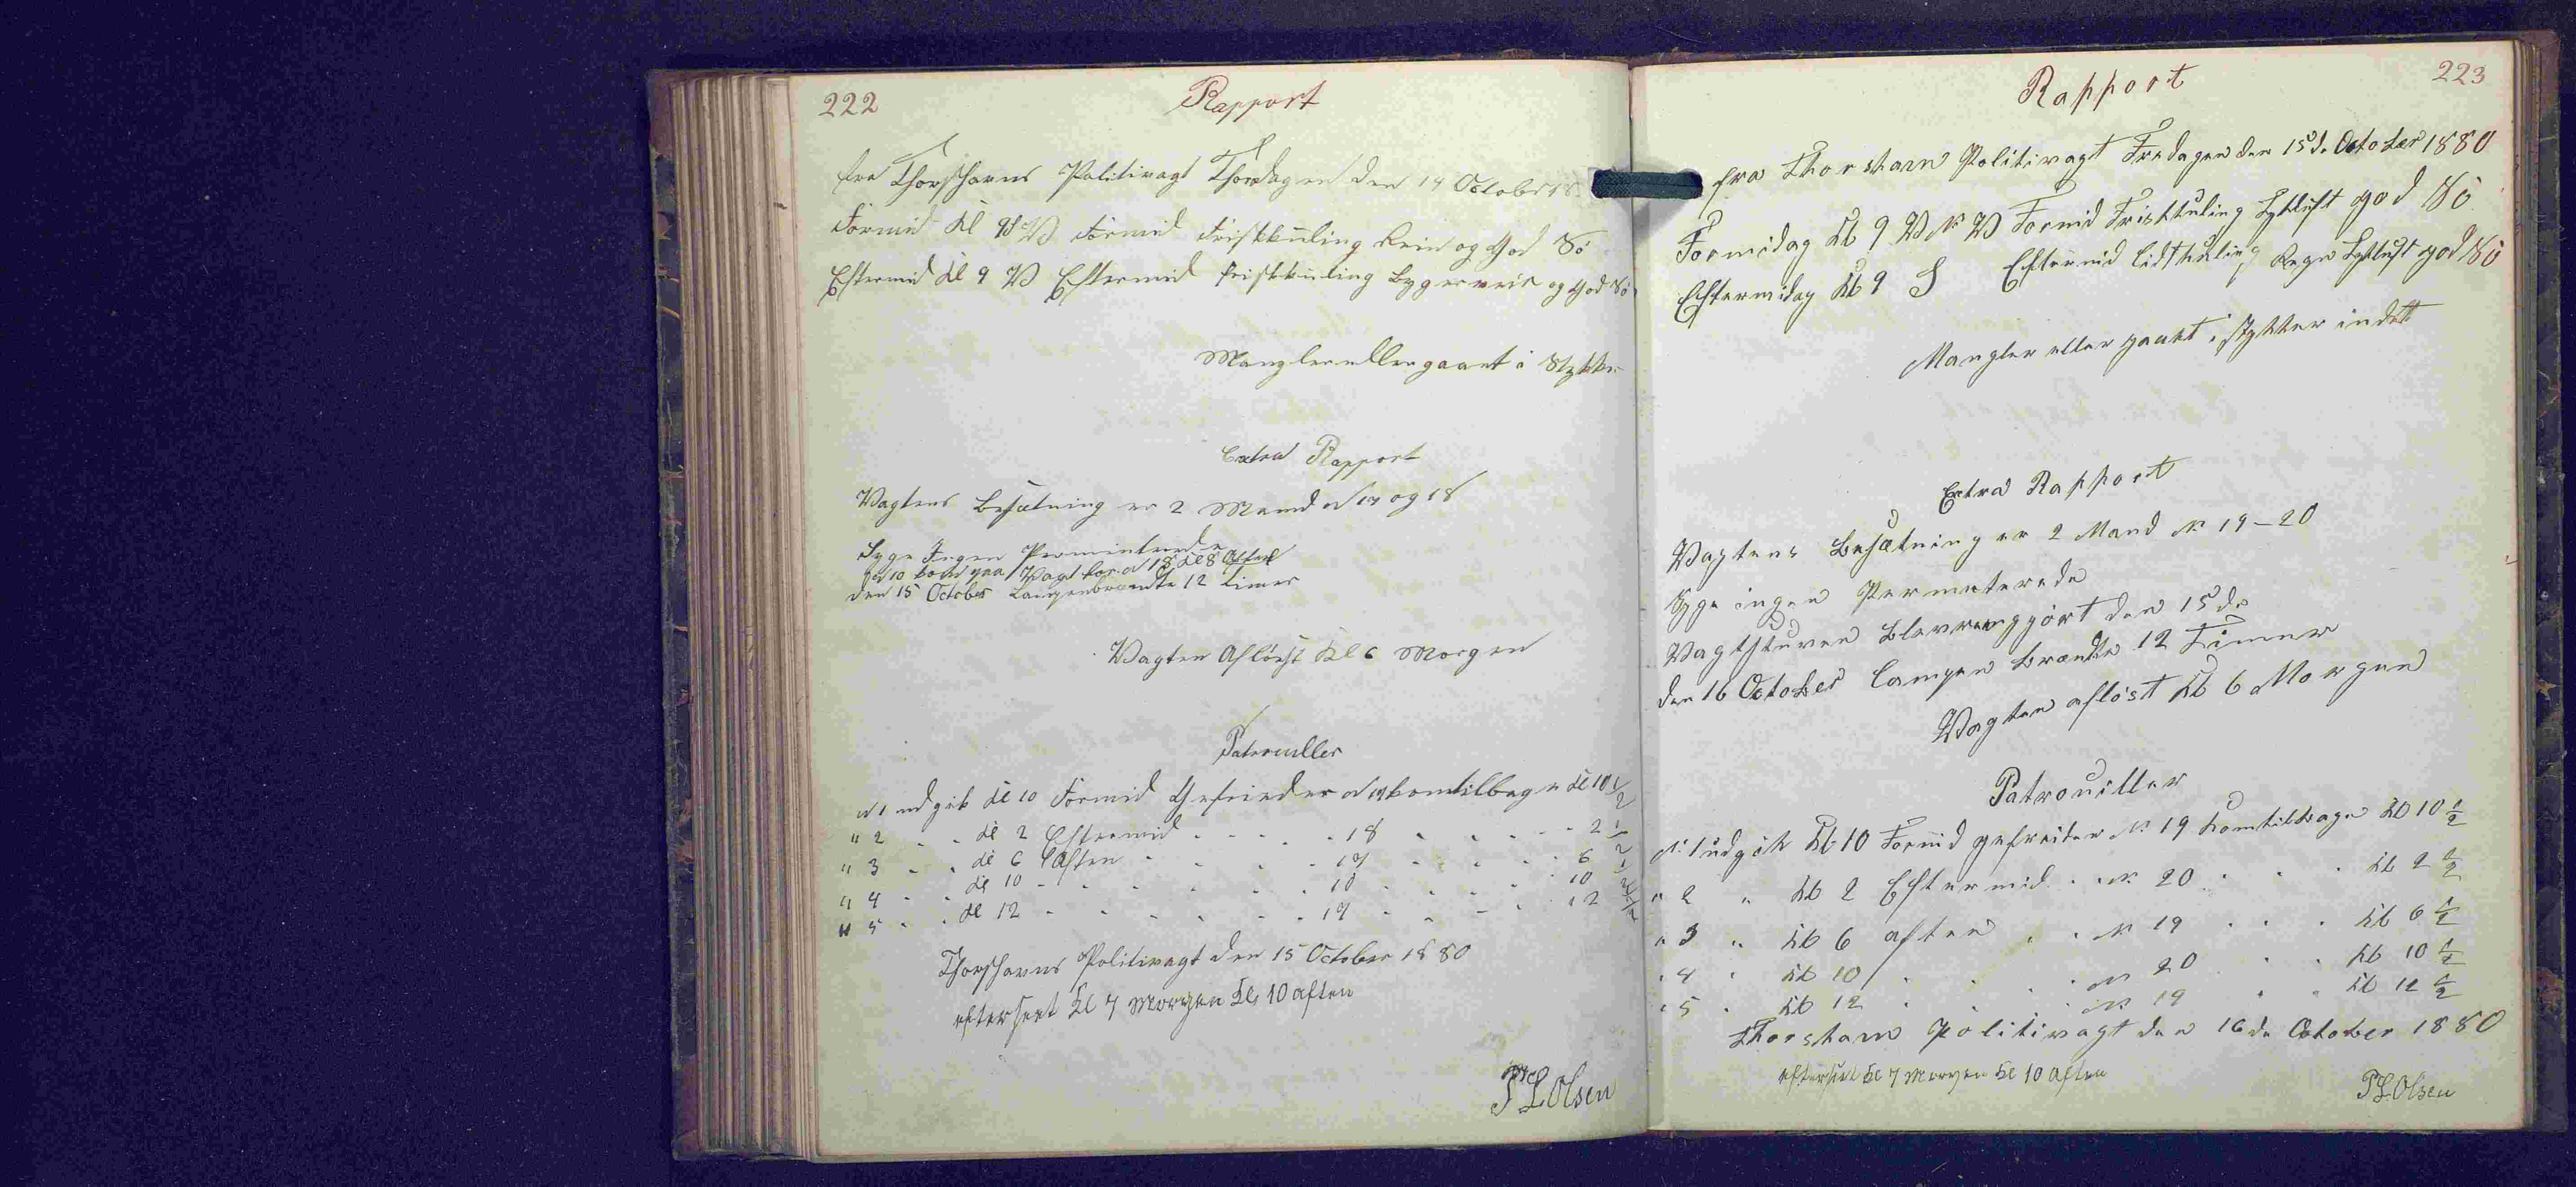 222
Rapport
fra Thorshavns Politivagt Thorsdagen den 14 October 18
Formid Kl 9 V Formid Friskkuling Rein og God Sö
Eftermid Kl 9 V Eftermid friskkuling Bygerveir og God Sö
Mangler eller gaaet i Stykker
Extra Rapport
Vagtens Besætning er 2 Mand N 17 og 18
Syge Ingen Permiterede
N 10 kom paa Vagt for N 18 Kl 8 Aften
den 15 October Lampen brændte 12 timer
Vagten Aflöst Kl 6 Morgen
Patrouller
N 1 udgik Kl 10 Formid Gefrieder N 17 kom tilbage Kl 10 1/2
" 2 " " Kl 2 Eftermid " " " 18 " " " " 2 1/2
" 3 " " Kl 6 Aften " " " 17 " " " 6 1/2
" 4 " " Kl 10 " " " " 10 " " " 10 1/2
" 5 " " Kl 12 " " " " 17 " " " 12 1/2
Thorshavns Politivagt den 15 October 1880
efterseet Kl 7 Morgen Kl 10 aften
P L Olsen
223
Rapport
fra Thorshavn Politivagt Fredagen den 15de October 1880
Formidag Kl 9 V N V Formid Friskkuling Tyklüft god Sö
Eftermidag Kl 9 S Eftermid lidt kuling Regn Tyklüft god Sö
Mangler eller gaaet i stykker indtet
Extra Rapport
Vagtens Besætning er 2 Mand N 19 - 20
Syge ingen Permeterede
Vagtstuven Blev rengjort den 15de
den 16 October Lampen brændte 12 Timer
Vagten aflöst Kl 6 Morgen
Patrouiller
N 1 udgik Kl 10 Formid gefreider N 19 kom tilbage Kl 10 1/2
" 2 " Kl 2 Eftermid " " N 20 " " " Kl 2 1/2
" 3 " Kl 6 aften " " N 19 " " " Kl 6 1/2
" 4 " Kl 10 " " " N 20 " " Kl 10 1/2
" 5 " Kl 12 " " " N 19 " " Kl 12 1/2
Thorshavn Politivagt den 16de October 1880
efterseet Kl 7 Morgen Kl 10 Aften
P L Olsen